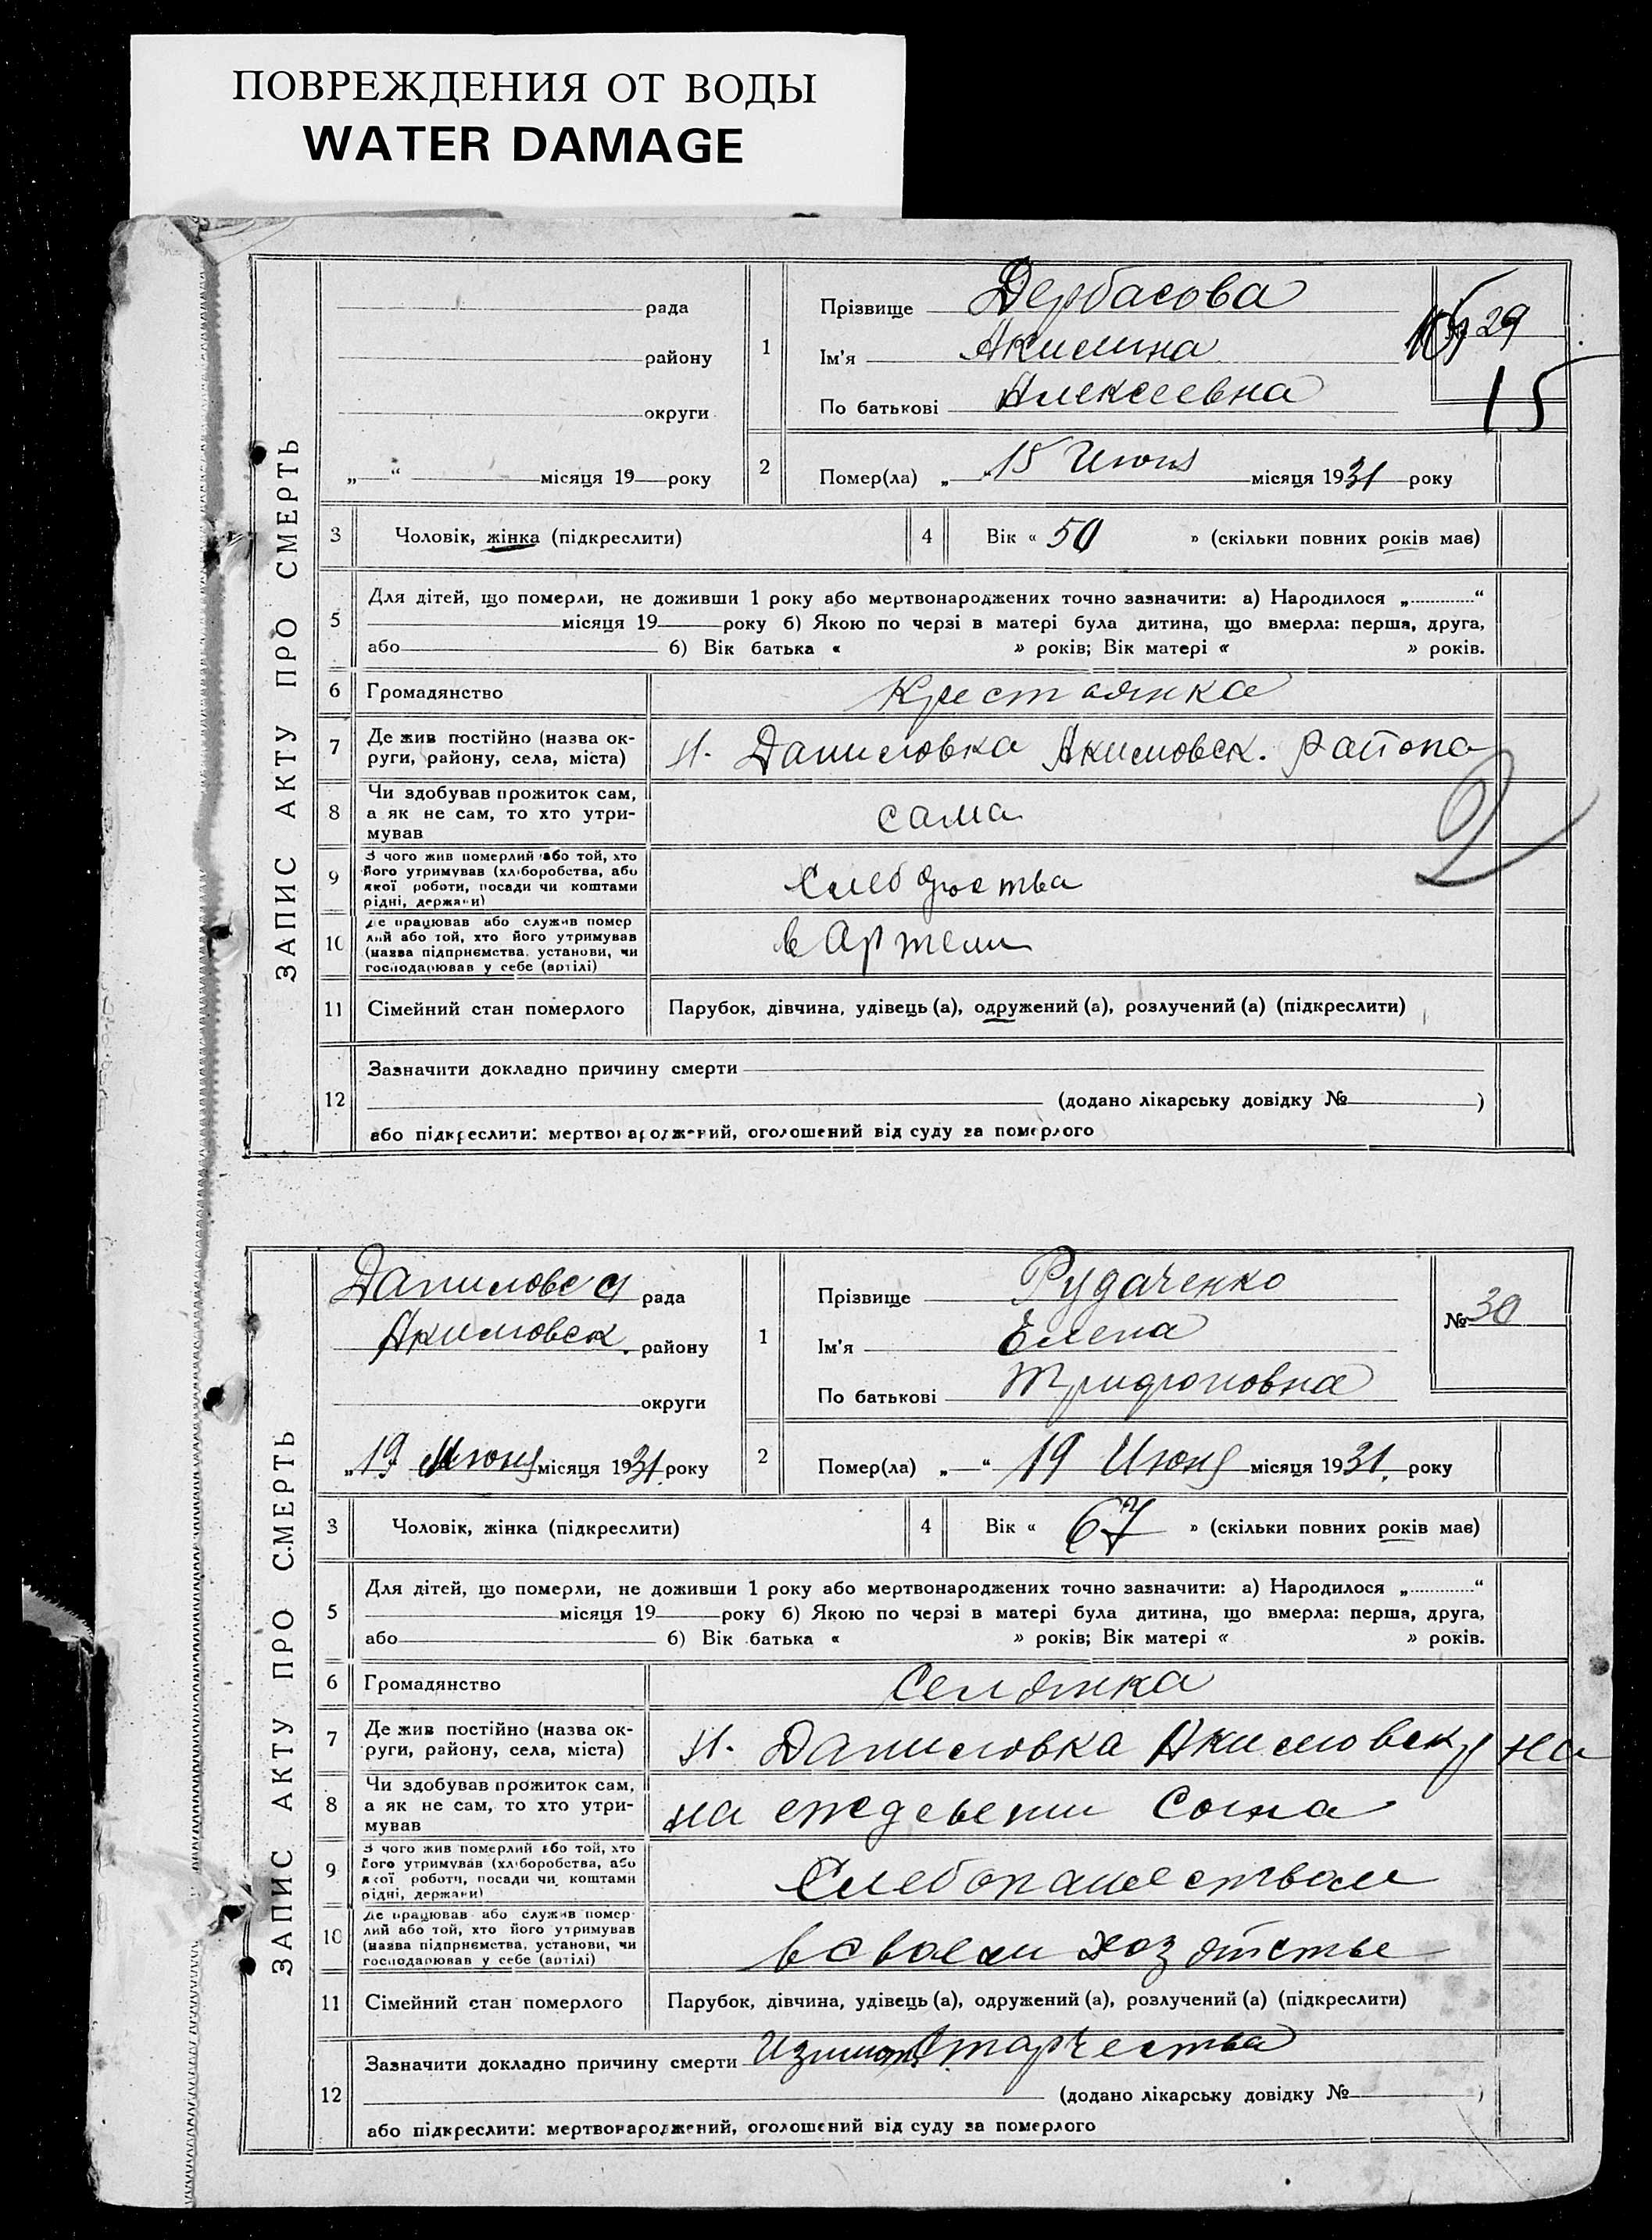 ПОВРЕЖДЕНИЯ ОТ ВОДЫ
WATER DAMAGE
ЗАПИС АКТУ ПРО СМЕРТЬ
рада
району
округи
„ “ місяця 19 року
1
Прізвище Дербасова
Ім'я Акилина
По батькові Алексеевна
29
15
2
Помер(ла) „ 15 Июня місяця 1931 року
3
Чоловік, жінка (підкреслити)
4
Вік « 50 » (скільки повних років має)
5
Для дітей, що померли, не доживши 1 року або мертвонароджених точно зазначити: а) Народилося „ “
місяця 19 року б) Якою по черзі в матері була дитина, що вмерла: перша, друга,
або б) Вік батька « » років; Вік матері « » років.
6
Громадянство
Крестьянка
7
Де жив постійно (назва ок-
руги, району, села, міста)
Н. Даниловка Акимовск. района
2
8
Чи здобував прожиток сам,
а як не сам, то хто утри-
мував
сама
9
З чого жив померлий або той, хто
його утримував (хліборобства, або
якої роботи, посади чи коштами
рідні, держави)
10
Де працював або служив помер
лий або той, хто його утримував
(назва підприємства, установи, чи
господарював у себе (артілі)
в Артели
11
Сімейний стан померлого
Парубок, дівчина, удівець (а), одружений (а), розлучений (а) (підкреслити)
12
Зазначити докладно причину смерти
(додано лікарську довідку № )
або підкреслити: мертвонароджений, оголошений від суду за померлого
ЗАПИС АКТУ ПРО СМЕРТЬ
Даниловся рада
Акимовск. району
округи
„19 Июня місяця 1931 року
1
Прізвище Рудаченко
Ім'я Елена
По батькові Трифоновна
№ 30
2
Помер(ла) „ “ 19 Июня місяця 1931. року
3
Чоловік, жінка (підкреслити)
4
Вік « 67 » (скільки повних років має)
5
Для дітей, що померли, не доживши 1 року або мертвонароджених точно зазначити: а) Народилося „ “
місяця 19 року б) Якою по черзі в матері була дитина, що вмерла: перша, друга,
або б) Вік батька « » років; Вік матері « » років.
6
Громадянство
Селянка
7
Де жив постійно (назва ок-
руги, району, села, міста)
Н. Даниловка Акимовск
8
Чи здобував прожиток сам,
а як не сам, то хто утри-
мував
на еждевени Сына
9
З чого жив померлий або той, хто
його утримував (хліборобства, або
якої роботи, посади чи коштами
рідні, держави)
Хлебопашеством
10
Де працював або служив помер-
лий або той, хто його утримував
(назва підприємства, установи, чи
господарював у себе (артілі)
в своем хозяйстве
11
Сімейний стан померлого
Парубок, дівчина, удівець (а), одружений (а), розлучений (а) (підкреслити)
12
Зазначити докладно причину смерти Старчества
(додано лікарську довідку № )
або підкреслити: мертвонароджений, оголошений від суду за померлого